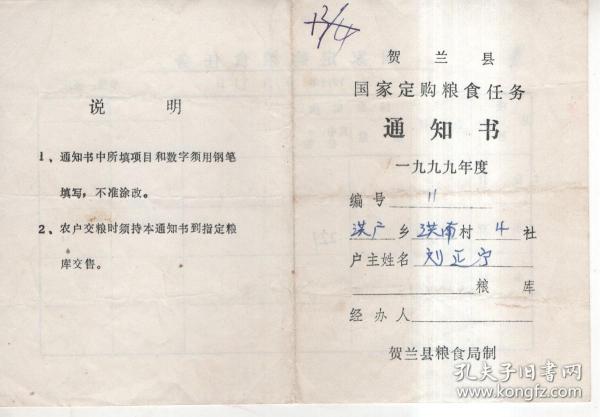 说 明
1、通知书中所填项目和数字须用钢笔
填写，不准涂改。
2、农户交粮时须持本通知书到指定粮
库交售。
贺 兰 县
国家定购粮食任务
通 知 书
一九九九年度
编号 11
洪广 乡 洪南 村 4 社
户主姓名 刘正宁
粮 库
经 办 人
贺兰县粮食局制
孔夫子旧书网
www.kongfz.com